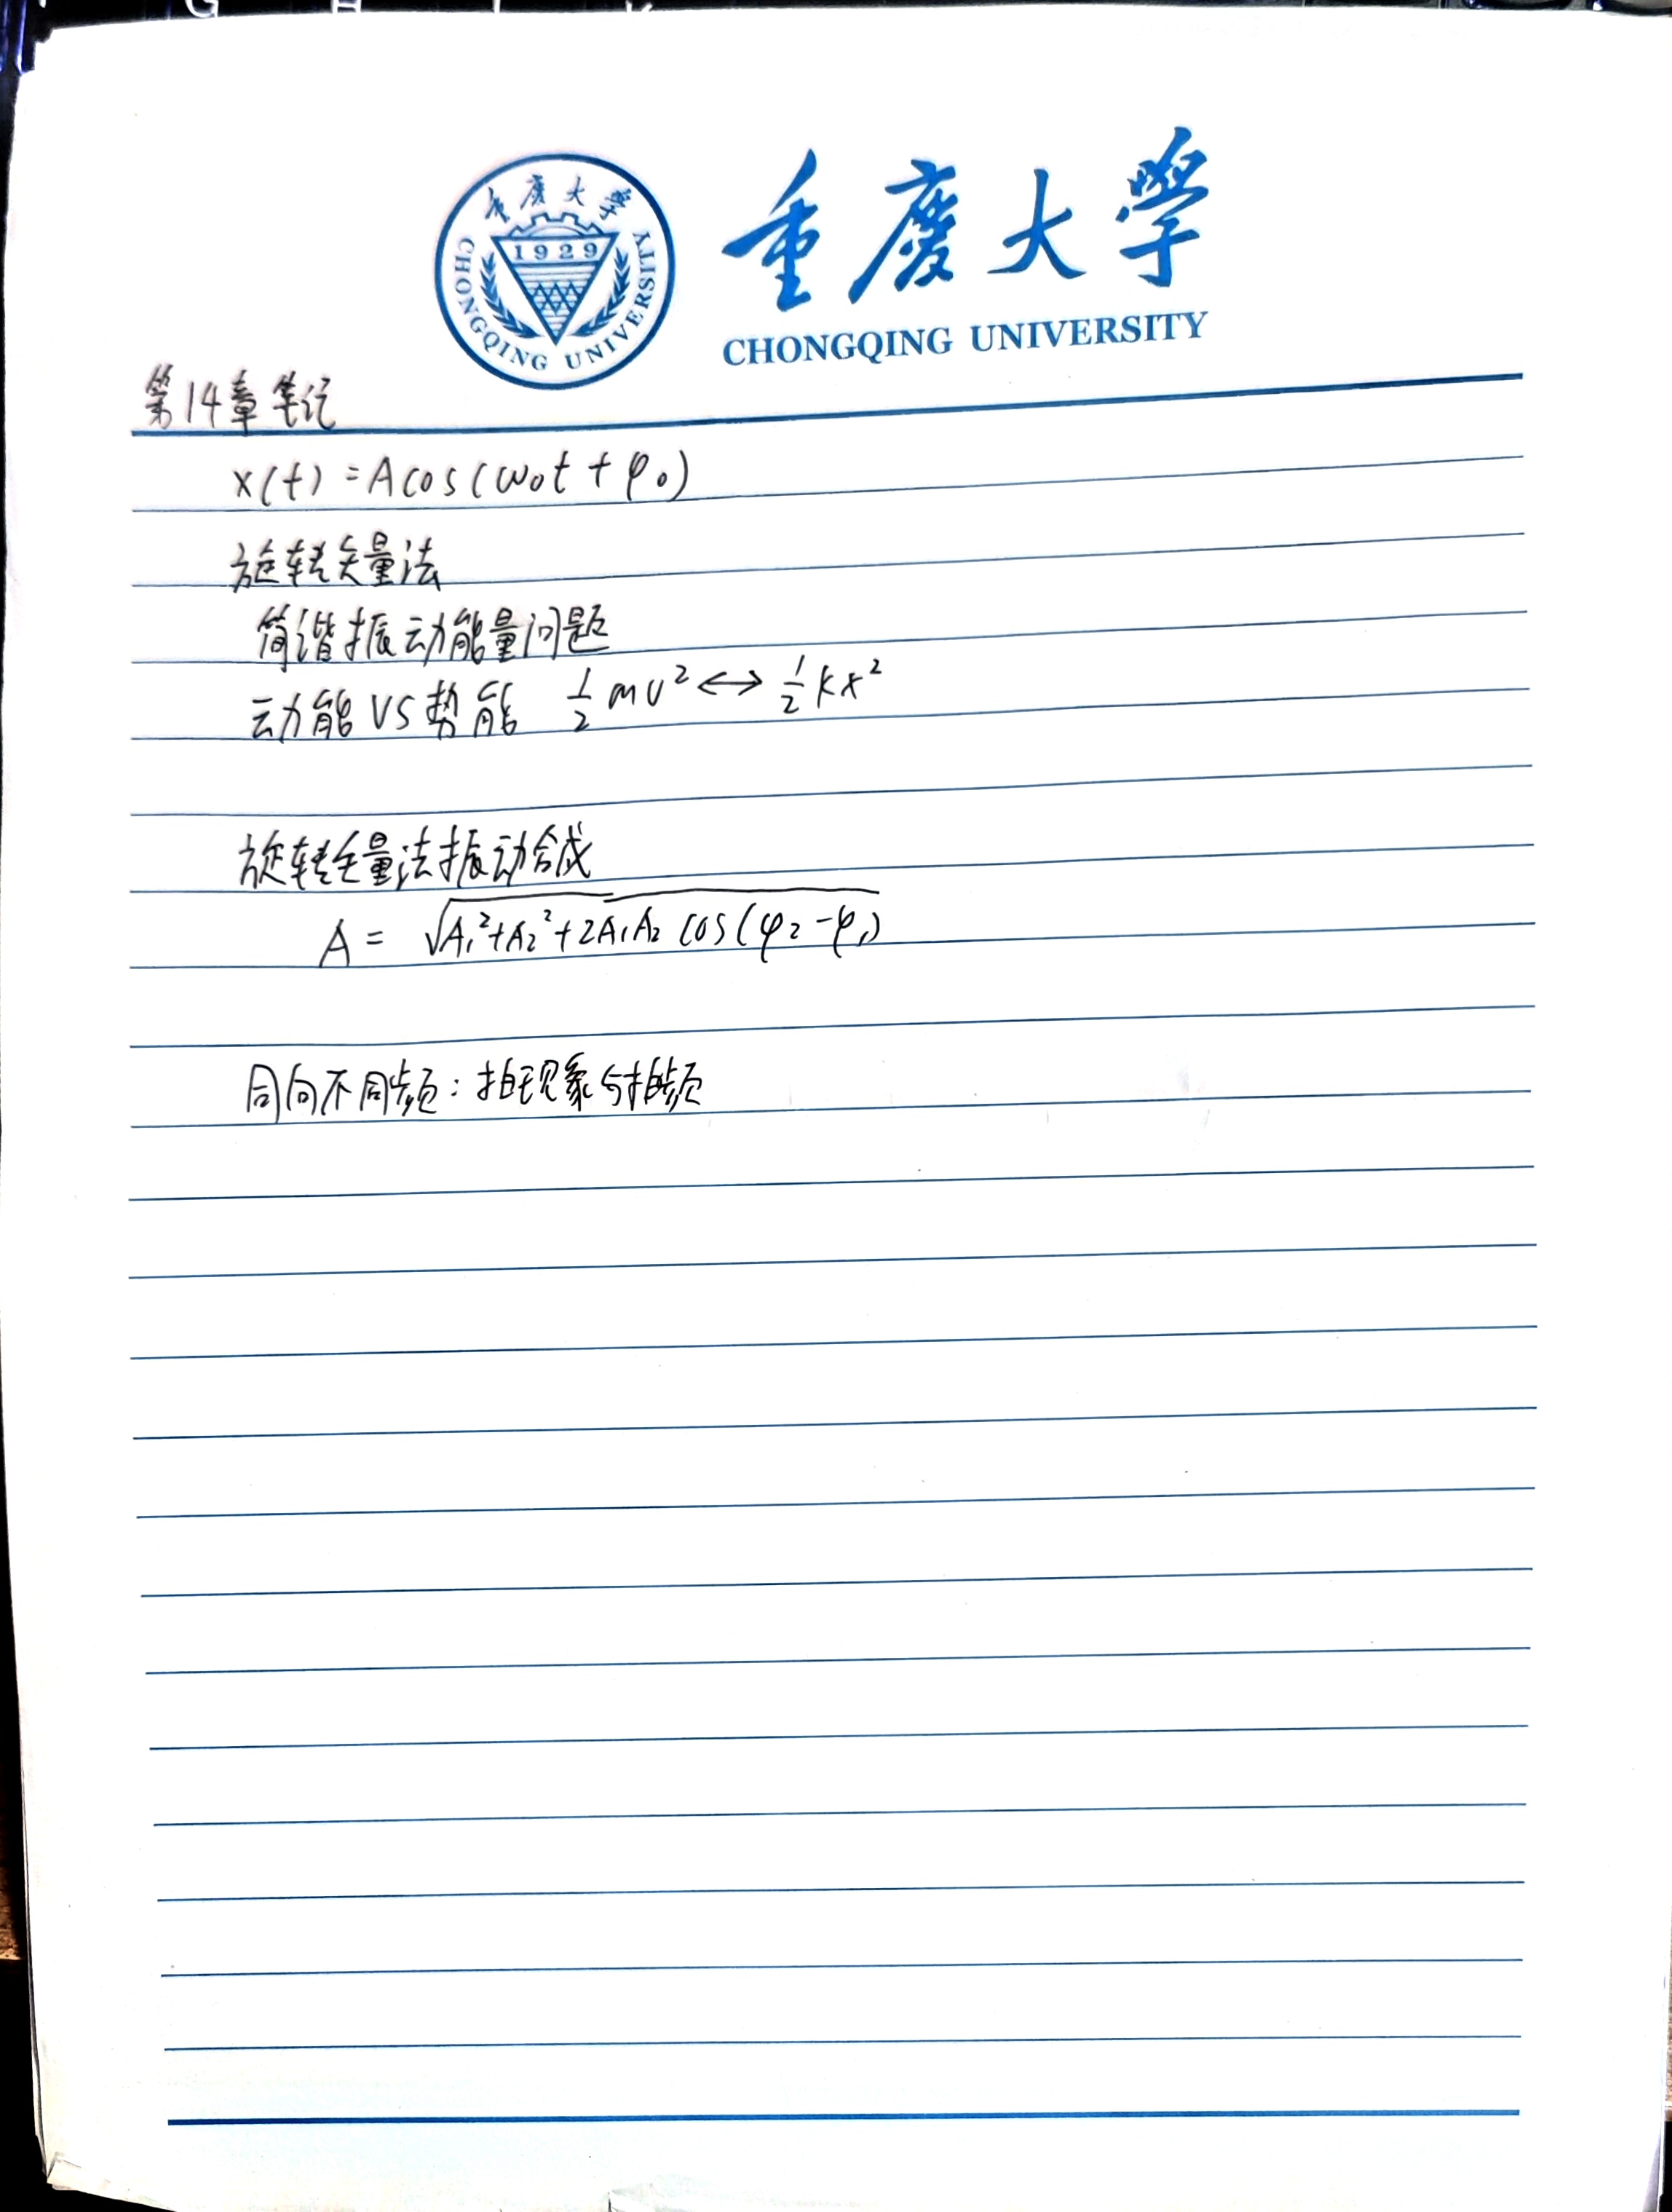 重慶大學
1929
CHONGQING UNIVERSITY
重慶大學
CHONGQING UNIVERSITY
第14章笔记
x(t)=Acos(ω₀t+φ₀)
旋转矢量法
简谐振动能量问题
动能VS势能 ½mv²↔½kx²
旋转矢量法振动合成
A=√(A₁²+A₂²+2A₁A₂cos(φ₂-φ₁))
同向不同频:拍现象与拍频